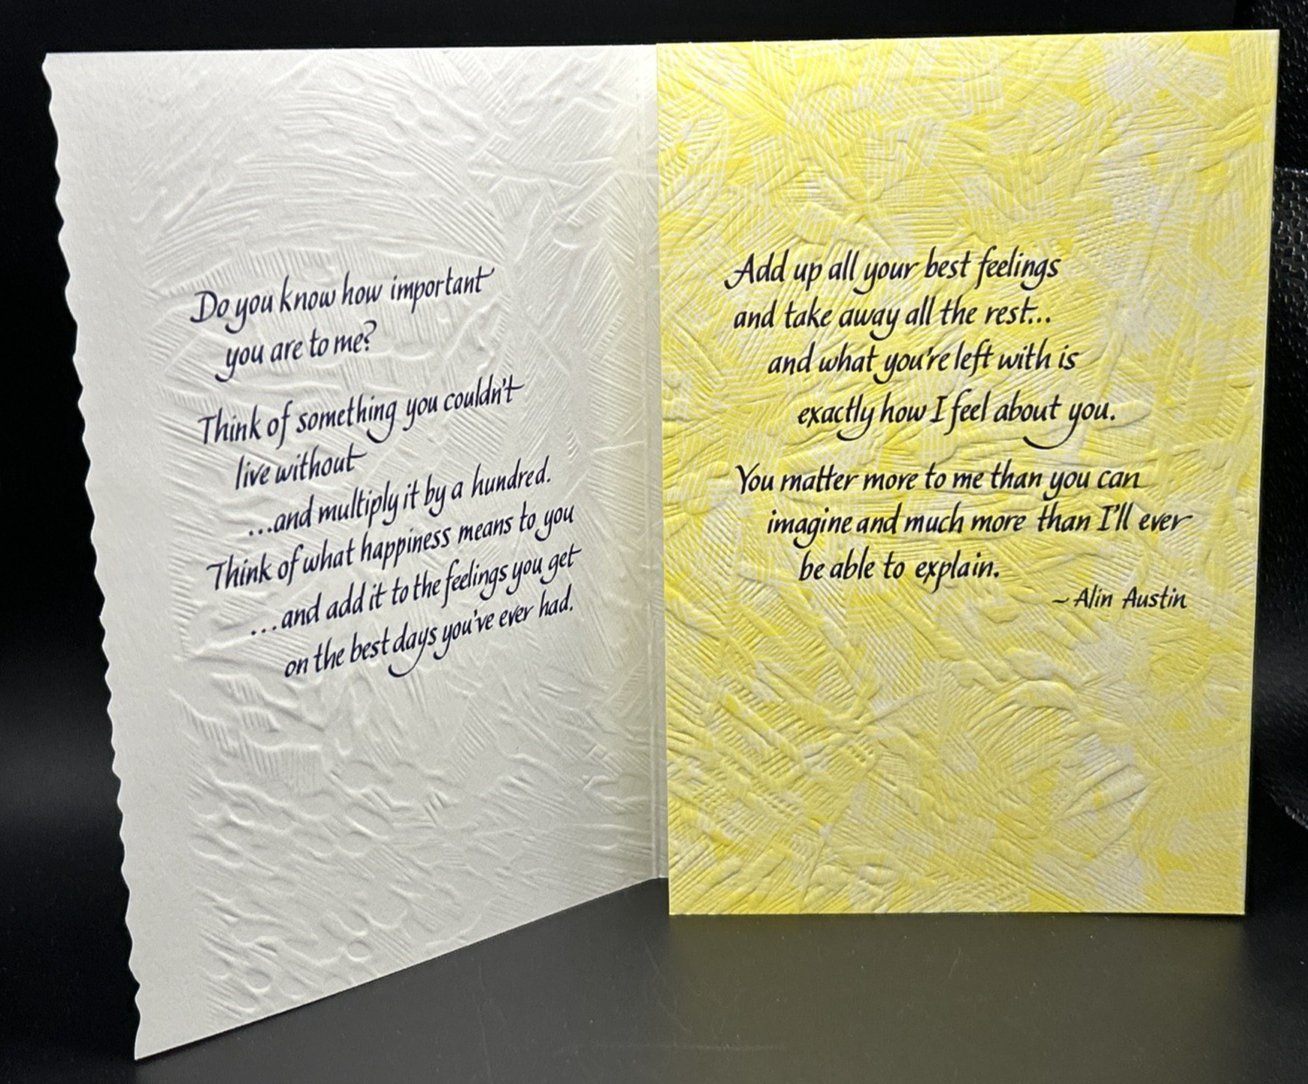 Do you know how important
you are to me?
Think of something you couldn't
live without
...and multiply it by a hundred.
Think of what happiness means to you
...and add it to the feelings you get
on the best days you've ever had.
Add up all your best feelings
and take away all the rest...
and what you're left with is
exactly how I feel about you.
You matter more to me than you can
imagine and much more than I'll ever
be able to explain.
~ Alin Austin